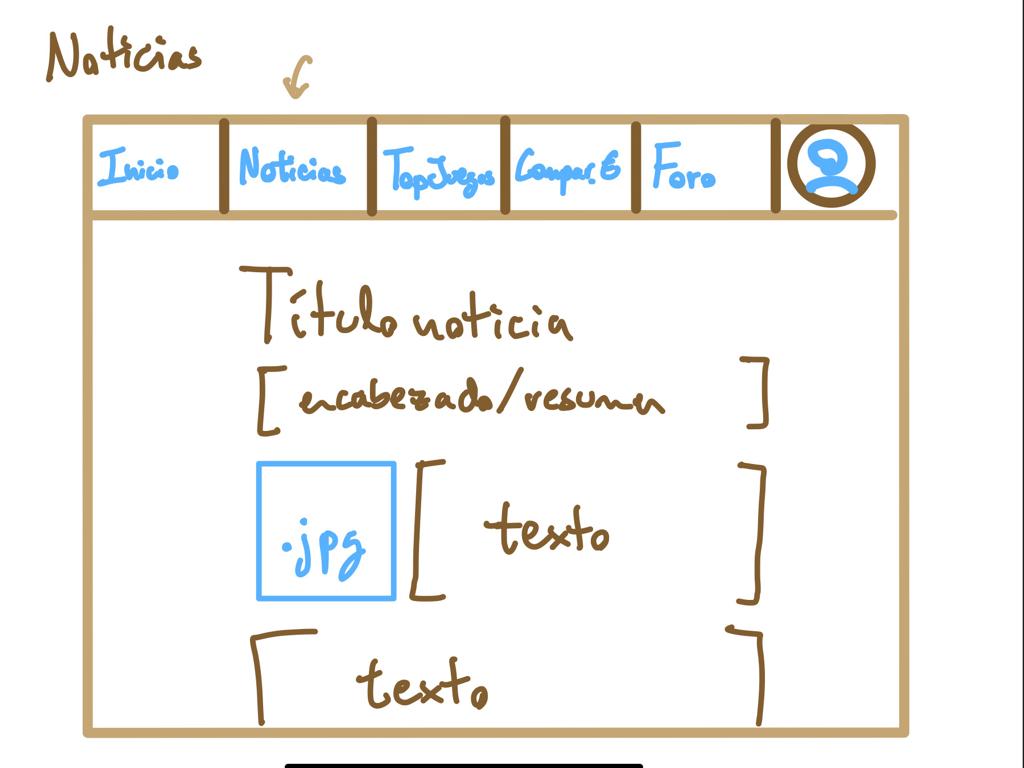 Noticias
Inicio Noticias TopJuegos Compar. € Foro
Título noticia
[encabezado/resumen]
.jpg [texto]
texto